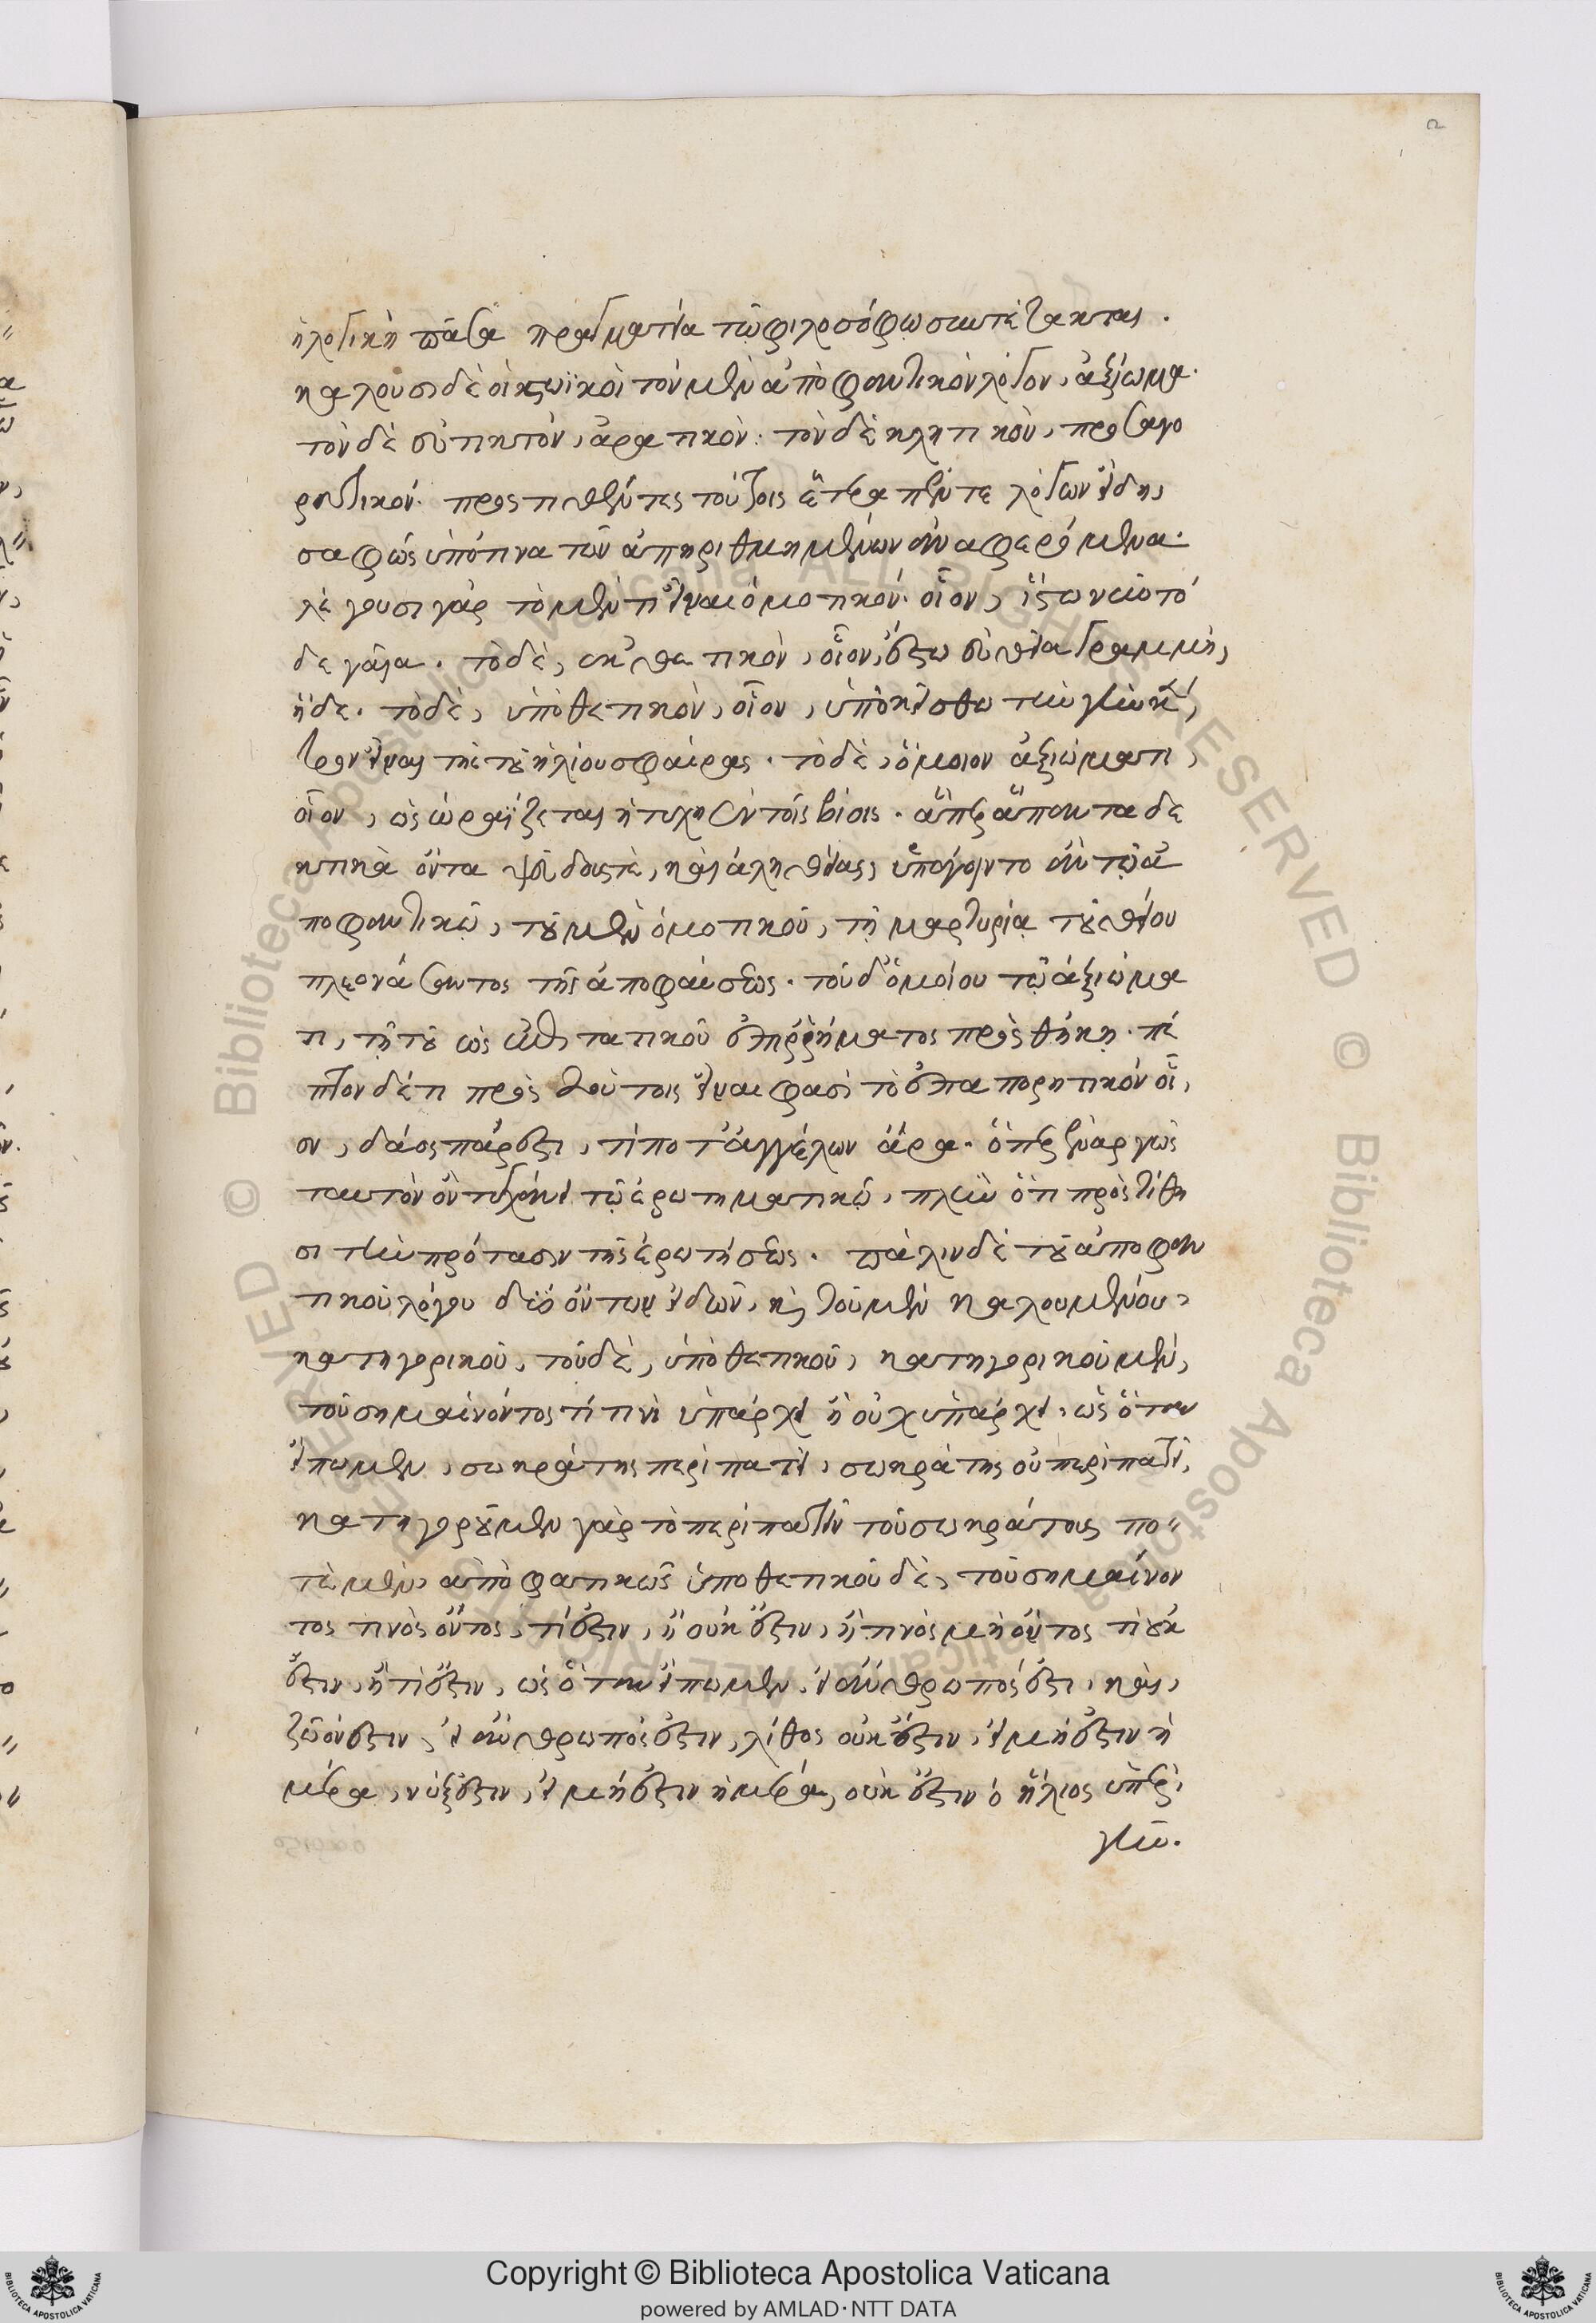 ἡ λογικὴ πᾶσα πραγματεία τῷ φιλοσόφῳ συντέτακται.
καλοῦσι δὲ οἱ στωϊκοὶ τὸν μὲν ἀποφαντικὸν λόγον, ἀξίωμα.
τὸν δὲ εὐκτικὸν, ἀρατικόν· τὸν δὲ κλητικὸν, προσαγο
ρευτικόν. προστιθέντες τούτοις ἕτερα πέντε λόγων εἴδη,
σαφῶς ὑπό τινα τῶν ἀπηριθμημένων ἀναφερόμενα.
λέγουσι γὰρ τὸ μέν τι εἶναι ὀμοτικόν. οἷον, ἴστω νῦν τό
δε γαῖα. τὸ δὲ, ἐκθετικὸν, οἷον, ἔστω εὐθεῖα γραμμὴ,
ἥδε. τὸ δὲ, ὑποθετικὸν, οἷον, ὑποκείσθω τὴν γῆν κέν
τρον εἶναι τῆς τοῦ ἡλίου σφαίρας. τὸ δὲ, ὅμοιον ἀξιώματι,
οἷον, ὡς ὡραΐζεται ἡ τύχη ἐν τοῖς βίοις. ἅπερ ἅπαντα δε
κτικὰ ὄντα ψεύδους τὲ, καὶ ἀληθείας, ὑπάγοιντο ἂν τῷ ἀ
ποφαντικῷ, τοῦ μὲν ὀμοτικοῦ, τῇ μαρτυρίᾳ τοῦ θείου
πλεονάσαντος τῆς ἀποφάνσεως. τοῦ δ' ὁμοίου τῷ ἀξιώμα
τι, τῇ τοῦ ὡς ἐπιτατικοῦ ἐπιρρήματος προσθήκῃ. πέ
μπτον δέ τι πρὸς τούτοις εἶναι φασὶ τὸ ἐπαπορητικόν οἷ,
ον, δάος πάρεστι, τίποτ' ἀγγέλων ἄρα. ὅπερ ἐναργῶς
ταυτὸν ὂν τυγχάνει τῷ ἐρωτηματικῷ, πλὴν ὅτι προστίθη
σι τὴν πρότασιν τῆς ἐρωτήσεως. πάλιν δὲ τοῦ ἀποφαν
τικοῦ λόγου δύο ὄντων εἰδῶν, καὶ τοῦ μὲν καλουμένου,
κατηγορικοῦ, τοῦ δὲ, ὑποθετικοῦ, κατηγορικοῦ μὲν,
τοῦ σημαίνοντος τί τινι ὑπάρχει ἢ οὐχ ὑπάρχει, ὡς ὅταν
εἴπωμεν, σωκράτης περιπατεῖ, σωκράτης οὐ περιπατεῖ,
κατηγοροῦμεν γὰρ τὸ περιπατεῖν τοῦ σωκράτους πο
τὲ μὲν, ἀποφατικῶς ὑποθετικοῦ δὲ, τοῦ σημαίνον
τος τινὸς ὄντος, τί ἔστιν, ἢ οὐκ ἔστιν, ἢ τινὸς μὴ ὄντος τί οὐκ
ἔστιν, ἢ τί ἔστιν, ὡς ὅταν εἴπωμεν, εἰ ἄνθρωπός ἐστι, καὶ,
ζῶόν ἐστιν, εἰ ἄνθρωπός ἐστιν, λίθος οὐκ ἔστιν, εἰ μὴ ἔστιν ἡ
μέρα, νύξ ἐστιν, εἰ μὴ ἔστιν ἡμέρα, οὐκ ἔστιν ὁ ἥλιος ὑπὲρ
γῆν.
Copyright © Biblioteca Apostolica Vaticana
powered by AMLAD·NTT DATA